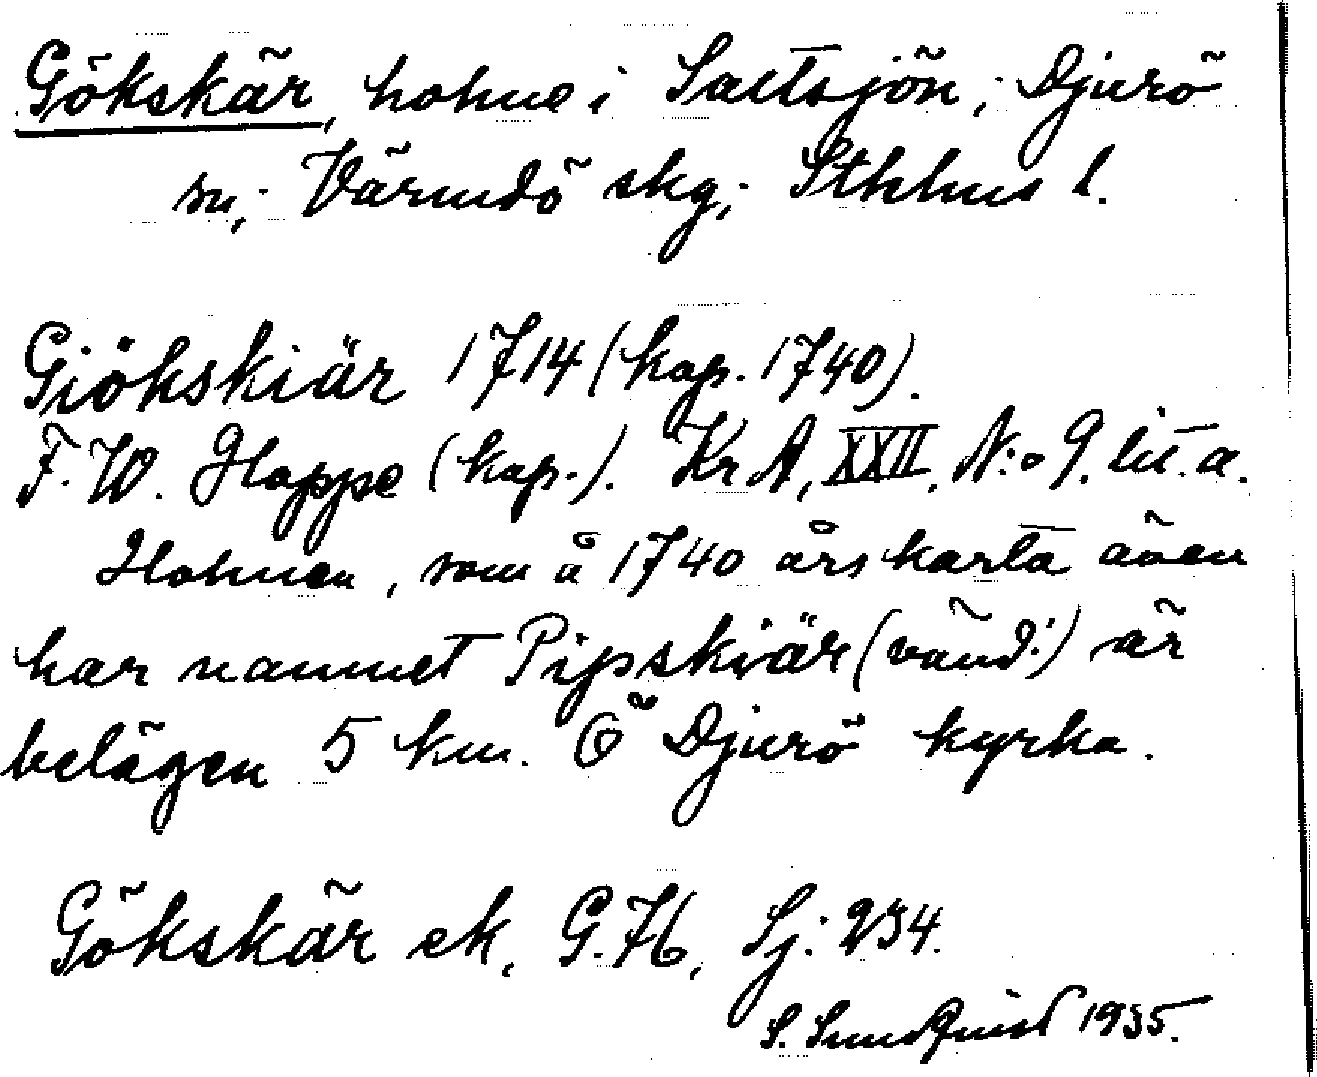 Gökskär, holme i Saltsjön; Djurö
sn; Värmdö skg; Sthlms l.
Giökskiär 1714 (kop. 1740).
F. W. Hoppe (kop.). KrA, XXII, N:o 9. lit. a.
Holmen, som å 1740 års karta även
har namnet Pipskiär (vånd:) är
belägen 5 km. Ö Djurö kyrka.
Gökskär ek. G. 76, Sj: 234.
S. Sundquist 1935.